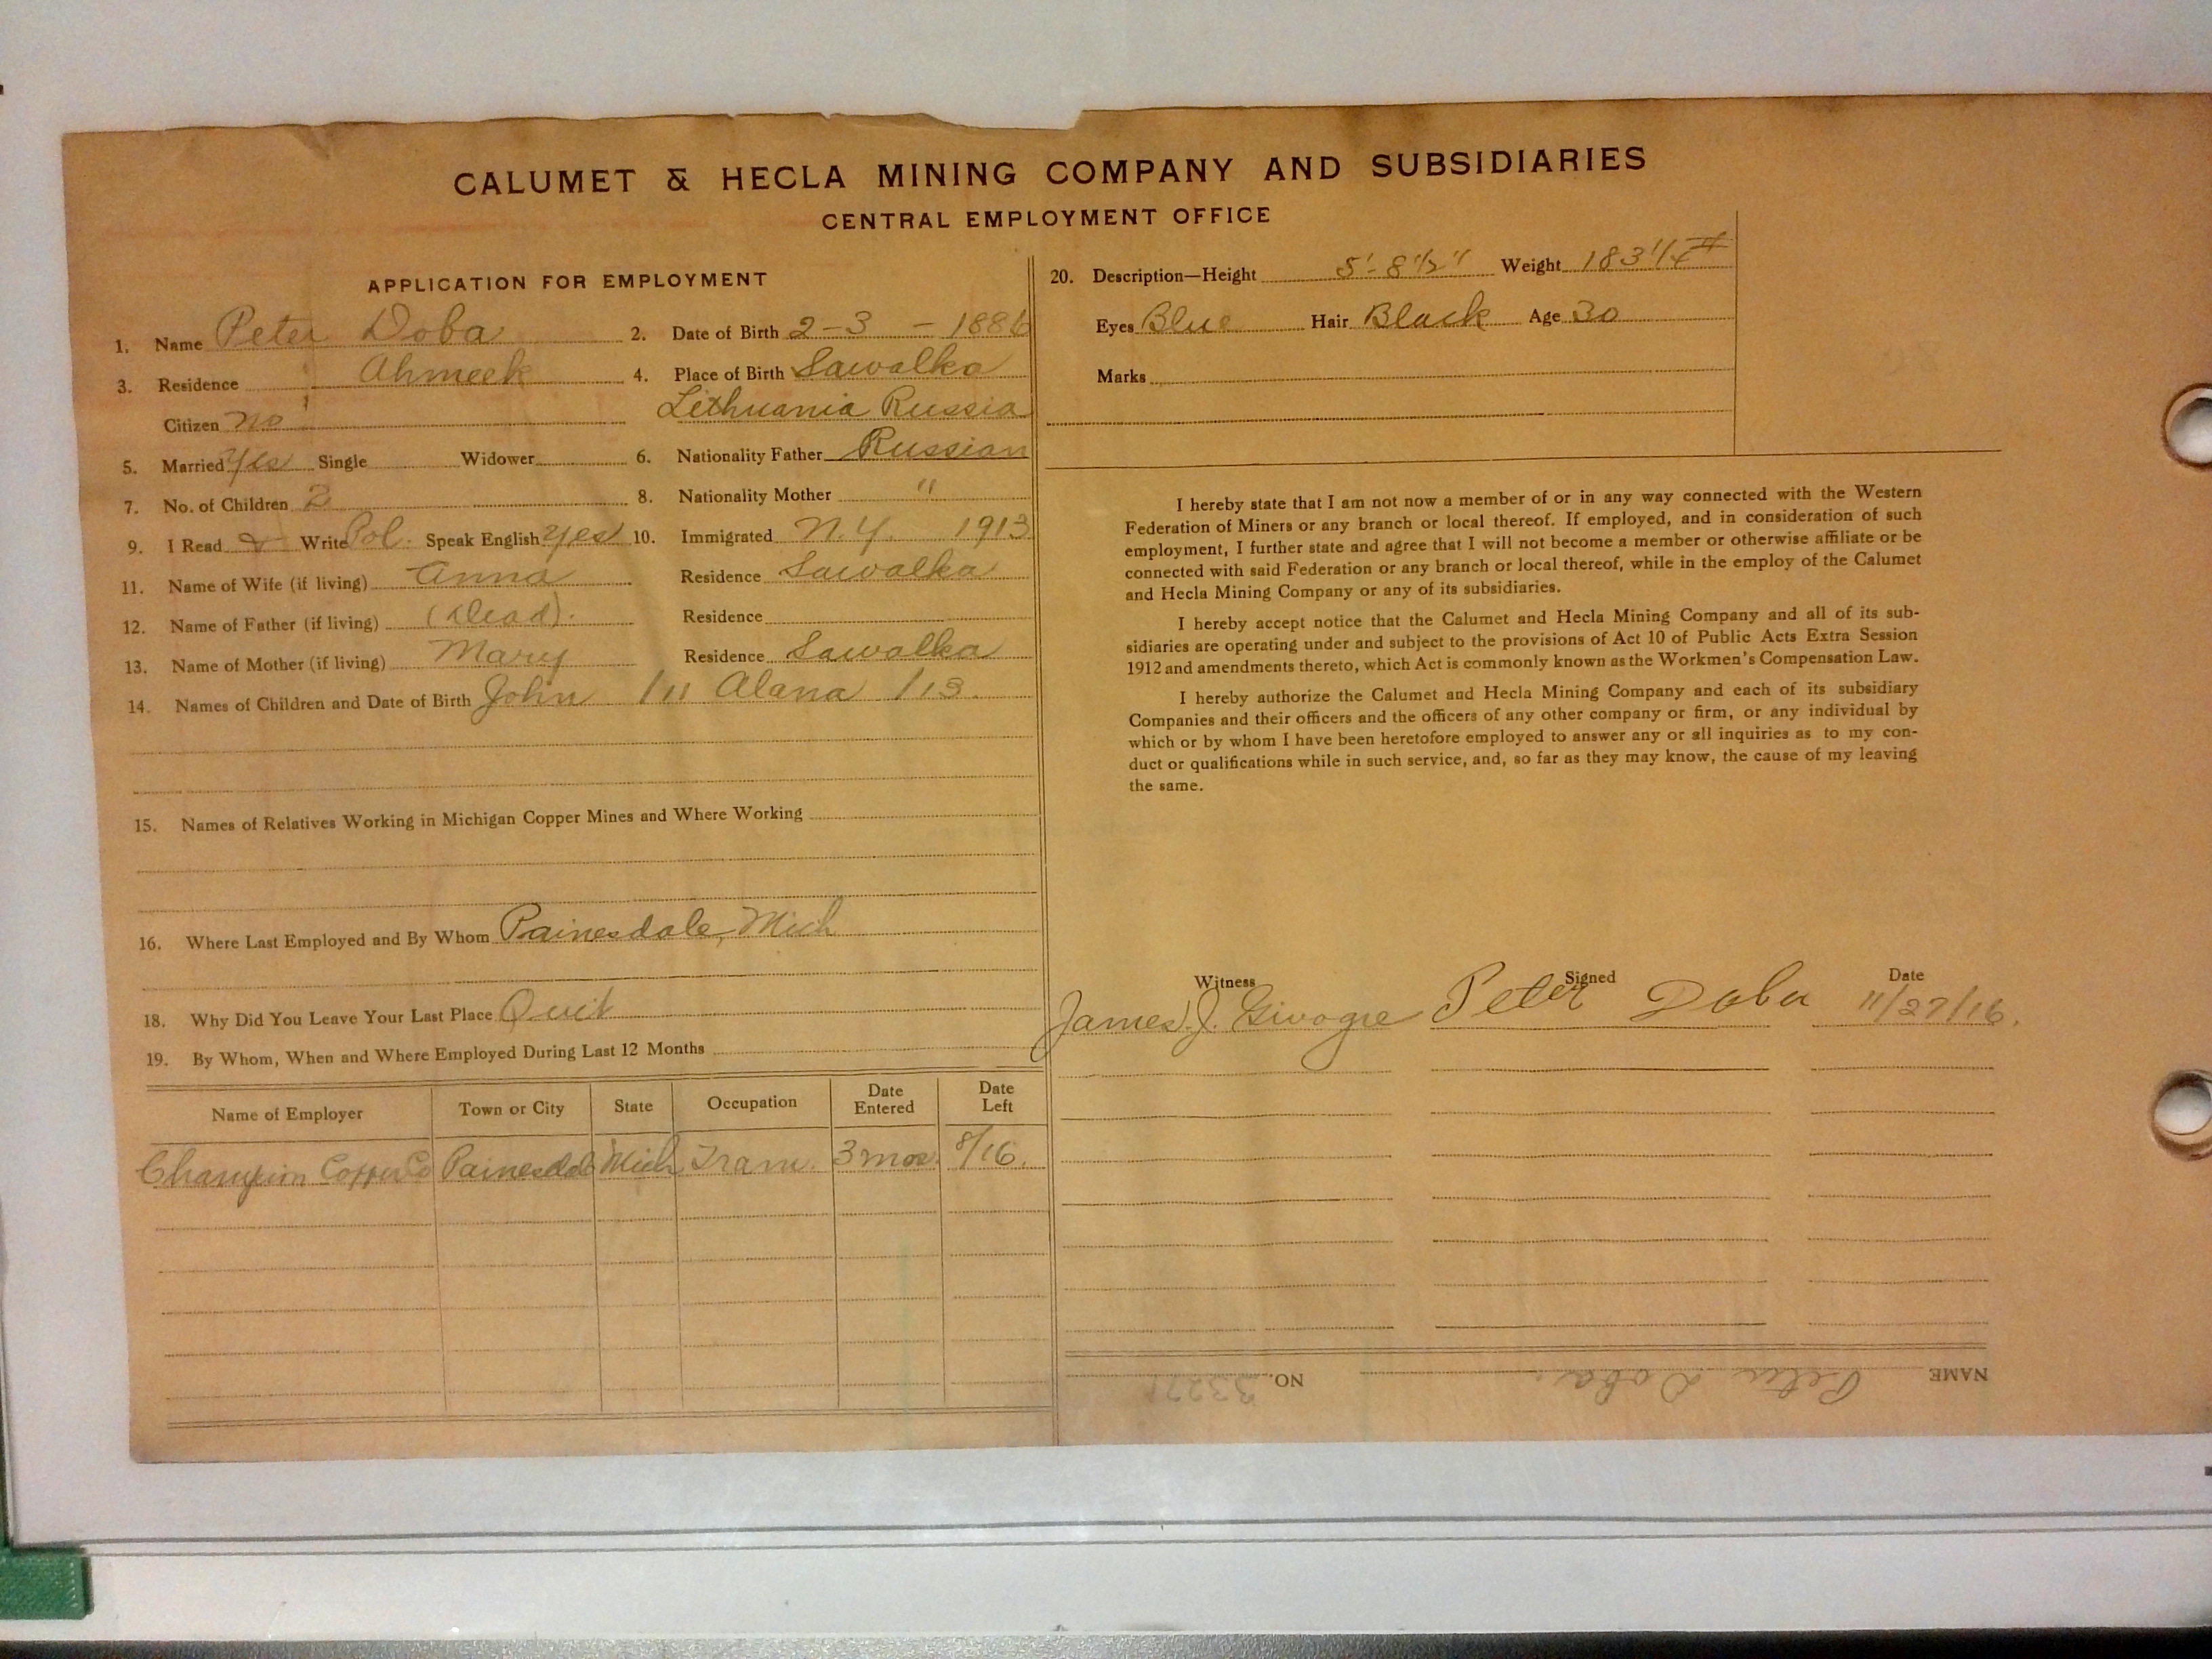 CALUMET & HECLA MINING COMPANY AND SUBSIDIARIES
CENTRAL EMPLOYMENT OFFICE
APPLICATION FOR EMPLOYMENT
1. Name Peter Doba 2. Date of Birth 2-3 - 1886
3. Residence Ahmeek 4. Place of Birth Sawalka
Citizen no Lithuania Russia
5. Married Yes Single Widower 6. Nationality Father Russian
7. No. of Children 2 8. Nationality Mother "
9. I Read & Write Pol. Speak English Yes 10. Immigrated N.Y. 1913
11. Name of Wife (if living) Anna Residence Sawalka
12. Name of Father (if living) (Dead). Residence
13. Name of Mother (if living) Mary Residence Sawalka
14. Names of Children and Date of Birth John /11 Alana /13.
15. Names of Relatives Working in Michigan Copper Mines and Where Working
16. Where Last Employed and By Whom Painesdale, Mich
18. Why Did You Leave Your Last Place Quit
19. By Whom, When and Where Employed During Last 12 Months
Name of Employer Town or City State Occupation Date Entered Date Left
Champion Copper Co Painesdale Mich Tram. 3 mos. 8/16.
20. Description—Height 5'-8 1/2" Weight 183 1/4 #
Eyes Blue Hair Black Age 30
Marks
I hereby state that I am not now a member of or in any way connected with the Western
Federation of Miners or any branch or local thereof. If employed, and in consideration of such
employment, I further state and agree that I will not become a member or otherwise affiliate or be
connected with said Federation or any branch or local thereof, while in the employ of the Calumet
and Hecla Mining Company or any of its subsidiaries.
I hereby accept notice that the Calumet and Hecla Mining Company and all of its sub-
sidiaries are operating under and subject to the provisions of Act 10 of Public Acts Extra Session
1912 and amendments thereto, which Act is commonly known as the Workmen's Compensation Law.
I hereby authorize the Calumet and Hecla Mining Company and each of its subsidiary
Companies and their officers and the officers of any other company or firm, or any individual by
which or by whom I have been heretofore employed to answer any or all inquiries as to my con-
duct or qualifications while in such service, and, so far as they may know, the cause of my leaving
the same.
Witness Signed Date
James J. Peter Doba 11/27/16.
NAME Peter Doba. NO.